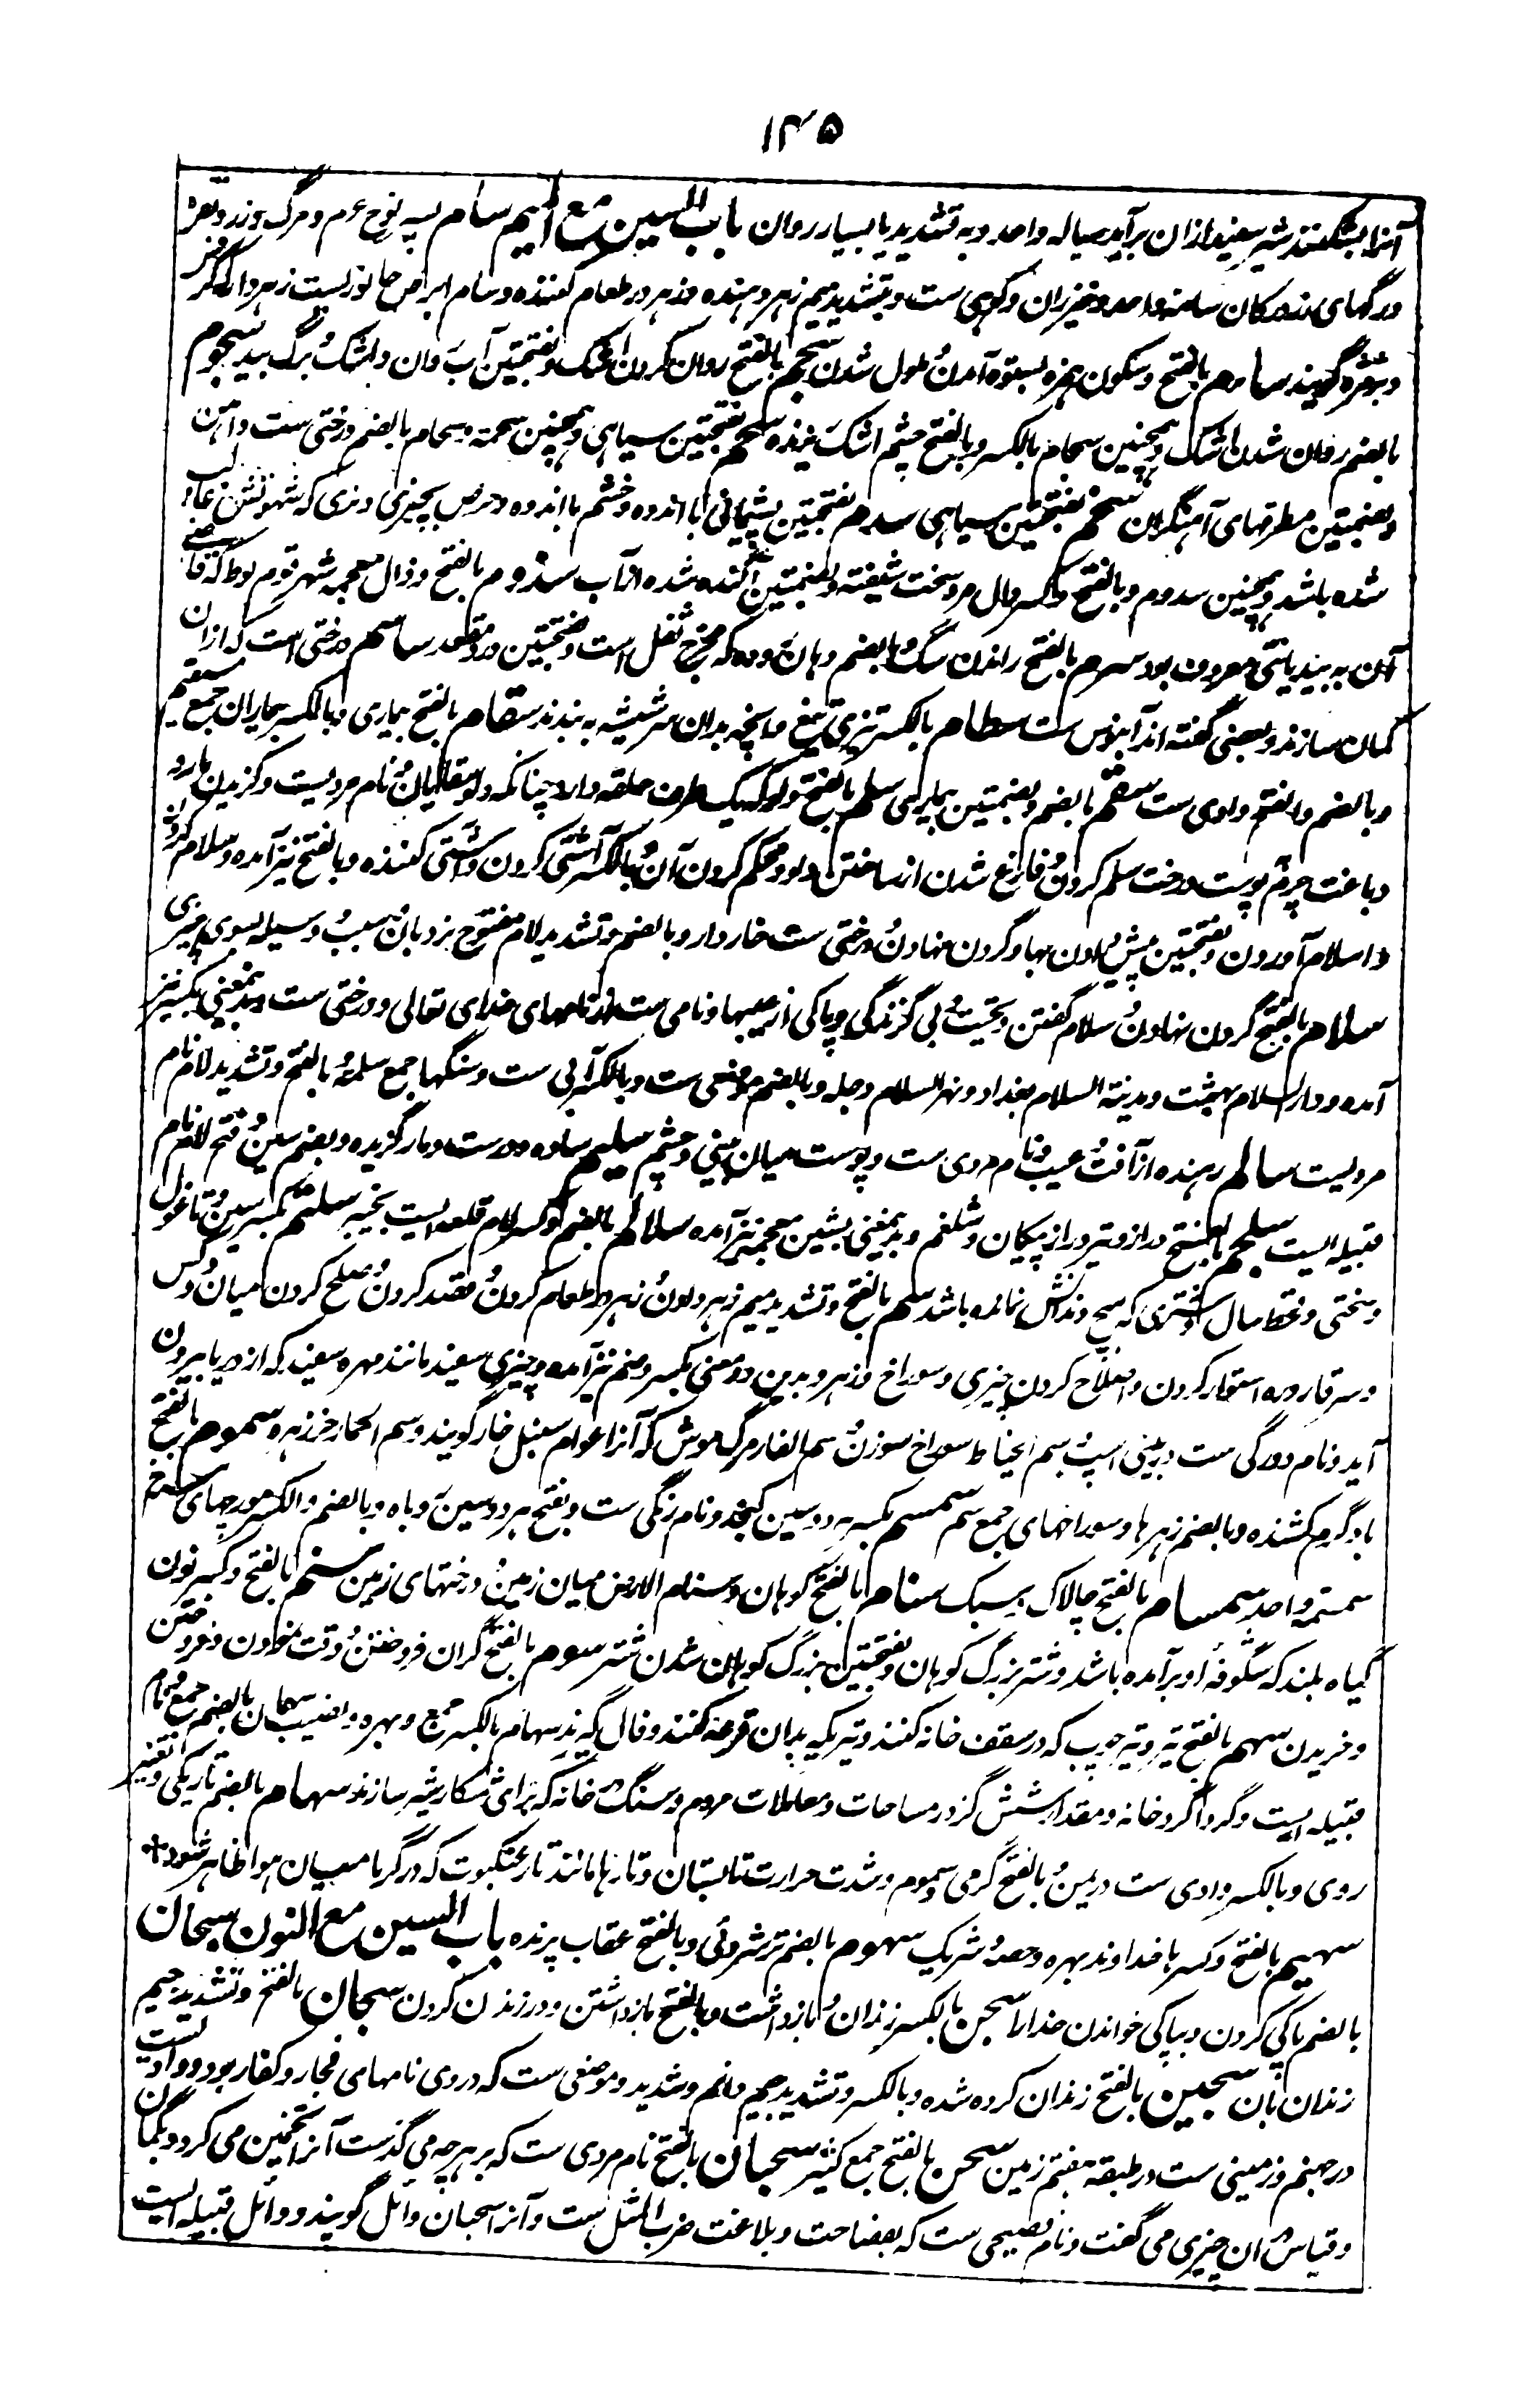 ۱۲۵
آنرا بشکنند شیر سفید ازان برآید سیاله واحد و به تشدید یا بسیار روان باب السین مع المیم سام پسر نوح ع م و مرگ و زر و نقره
و رگهای زر در کان سامة واحد و خیزران و کوهی ست و بتشدید میم زهر دهنده و زهر در طعام کننده و سام ابرص جانوریست زهردار که کرفش
و بتفره گویند سام بالفتح و سکون همزه بستوه آمدن و ملول شدن سجم بالفتح روان کردن اشک و بفتحتین آب روان و اشک و برگ بید سجوم
بالضم روان شدن اشک و همچنین سجام بالکسر و بالفتح چشم اشک ریزنده سحم بفتحتین سیاهی و همچنین سحمة و سحام بالضم درختی ست و آهن
و بضمتین مطرقهای آهنگران سخم بفتحتین سیاهی سدم بفتحتین پشیمانی با اندوه و خشم با اندوه و حرص بچیزی و نری که شهوتش غالب
شده باشد و همچنین سدوم و بالفتح و کسر دال مرد سخت شیفته و بضمتین آگنده شده از آب سذوم بالفتح و ذال معجمه شهر قوم لوط که قاضی
آن به بیدیانتی معروف بود سرم بالفتح راندن سگ و بالضم دهان روده که مخرج ثفل است و بفتحتین درد مقعد ساسم درختی است که ازان
کمان سازند و بعضی گفته اند آبنوس ست سطام بالکسر تیزی تیغ و آنچه بدان سر شیشه به بندند سقام بالفتح بیماری و بالکسر بیماران جمع سقیم
و بالضم و الفتح وادی ست سقم بالضم و بضمتین بیماری سلم بالفتح دلو که یک طرف حلقه دارد چنانکه دلو سقایان و نام مردیست و گزیدن مار و
دباغت چرم پوست درخت سلم کردن و فارغ شدن از ساختن دلو و محکم کردن آن و بالکسر آشتی کردن و آشتی کننده و بالفتح نیز آمده و سلام کردن
و اسلام آوردن و بفتحتین پیش دادن بها و گردن نهادن و درختی ست خاردار و بالضم و تشدید لام مفتوح نردبان و سبب و وسیله بسوی چیزی
سلام بالفتح گردن نهادن و سلام گفتن و تحیت و بی گزندگی و پاکی از عیبها و نامی ست از نامهای خدای تعالی و درختی ست و بدینمعنی بکسر نیز
آمده و دار السلام بهشت و مدینة السلام بغداد و نهر السلام دجله و بالضم موضعی ست و بالکسر آبی ست و سنگها جمع سلمة بالفتح و تشدید لام نام
مردیست سالم رهنده از آفت و عیب و نام مردی ست و پوست میان بینی و چشم سلیم ساده و درست و مار گزیده و بضم سین و فتح لام نام
قبیله ایست سلجم بالفتح دراز و تیر دراز پیکان و شلغم و بدینمعنی بشین معجمه نیز آمده سلالم بالضم و کسر لام قلعه ایست بخیبر سلتم بکسر سین و تا غول
و سختی و قحط سال و شتری که هیچ دندانش نمانده باشد سم بالفتح و تشدید میم زهر دادن و زهر در طعام کردن و قصد کردن و صلح کردن میان دو کس
و سر قاروره استوار کردن و اصلاح کردن چیزی و سوراخ و زهر و بدین دو معنی بکسر و ضم نیز آمده و چیزی سفید مانند مهره سفید که از دریا بیرون
آید و نام دو رگی ست در بینی اسپ سم الخیاط سوراخ سوزن سم الفار مرگ موش که آنرا عوام سنبل خار گویند و سم الحمار خرزهره سموم بالفتح
باد گرم کشنده و بالضم زهرها و سوراخهای جمع سم سمسم بکسر هر دو سین کنجد و نام رنگی ست و بفتح هر دو سین روباه و بالضم و الکسر مورچهای سرخ
سمسمة واحد سمسام بالفتح چالاک سبک سنام بالفتح کوهان و سنام الارض میان زمین و درختهای زمین سنم بالفتح و کسر نون
گیاه بلند که شگوفه او برآمده باشد و شتر بزرگ کوهان و بفتحتین بزرگ کوهان شدن شتر سوم بالفتح گران فروختن و وقت نمودن و فروختن
و خریدن سهم بالفتح تیر و تیر چوب که در سقف خانه کنند و تیری که بدان قرعه کنند و فال گیرند سهام بالکسر جمع و بهره و نصیب سهمان بالضم جمع و نام
قبیله ایست و گرداگرد خانه و مقدار شش گز در مساحات و معاملات مردم و سنگ خانه که برای شکار شیر سازند سهام بالضم تاریکی و تغیر
روی و بالکسر وادی ست در یمن و بالفتح گرمی سموم و شدت حرارت تابستان و تارها مانند تار عنکبوت که در گرما میان هوا ظاهر شود
سهیم بالفتح و کسر ها خداوند بهره و حصه و شریک سهوم بالضم ترشروئی و بالفتح عقاب پرنده باب السین مع النون سبحان
بالضم پاکی کردن و بپاکی خواندن خدا را سجن بالکسر زندان و بازداشت و بالفتح بازداشتن و در زندان کردن سجان بالفتح و تشدید جیم
زندان بان سجین بالفتح زندان کرده شده و بالکسر و تشدید جیم دائم و شدید و موضعی ست که در وی نامهای فجار و کفار بود و وادیست
در جهنم و زمینی ست در طبقه هفتم زمین سحن بالفتح جمع کثیر سحبان بالفتح نام مردی ست که بر هر چه می گذشت آنرا تخمین می کرد و بگمان
و قیاس ان چیزی می گفت و نام فصیحی ست که بفصاحت و بلاغت ضرب المثل ست و آنرا سحبان وائل گویند و وائل قبیله ایست